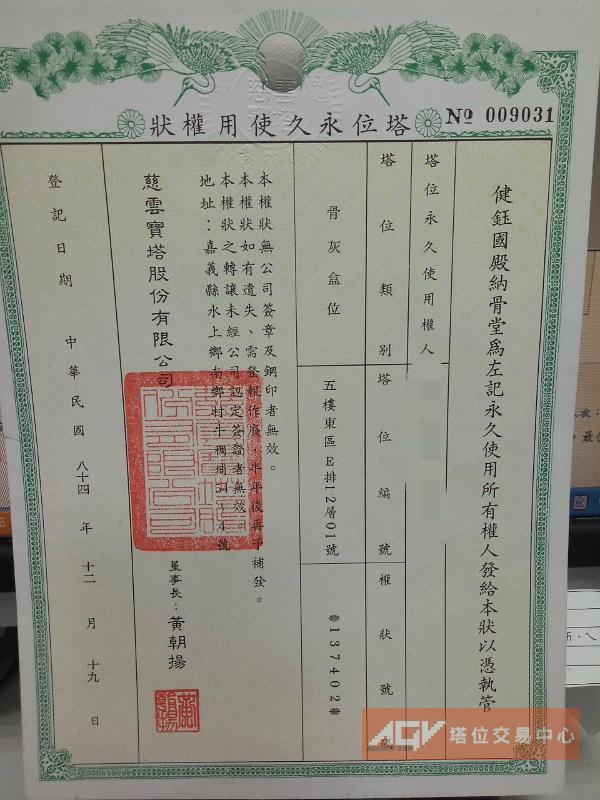 狀權用使久永位塔
№ 009031
健鈺國殿納骨堂為左記永久使用所有權人發給本狀以憑執管
塔位永久使用權人
塔位類別
塔位編號
權狀號
骨灰盒位
五樓東區E排12層01號
*1374402*
本權狀無公司簽章及鋼印者無效。
本權狀如有遺失、需登報作廢,半年後再予補發。
本權狀之轉讓未經公司認定簽證者無效。
地址:嘉義縣水上鄉南鄉村牛稠埔31~4號
慈雲寶塔股份有限公司
董事長:黃朝揚
登記日期 中華民國 八十四 年 十二 月 十九 日
AGV 塔位交易中心